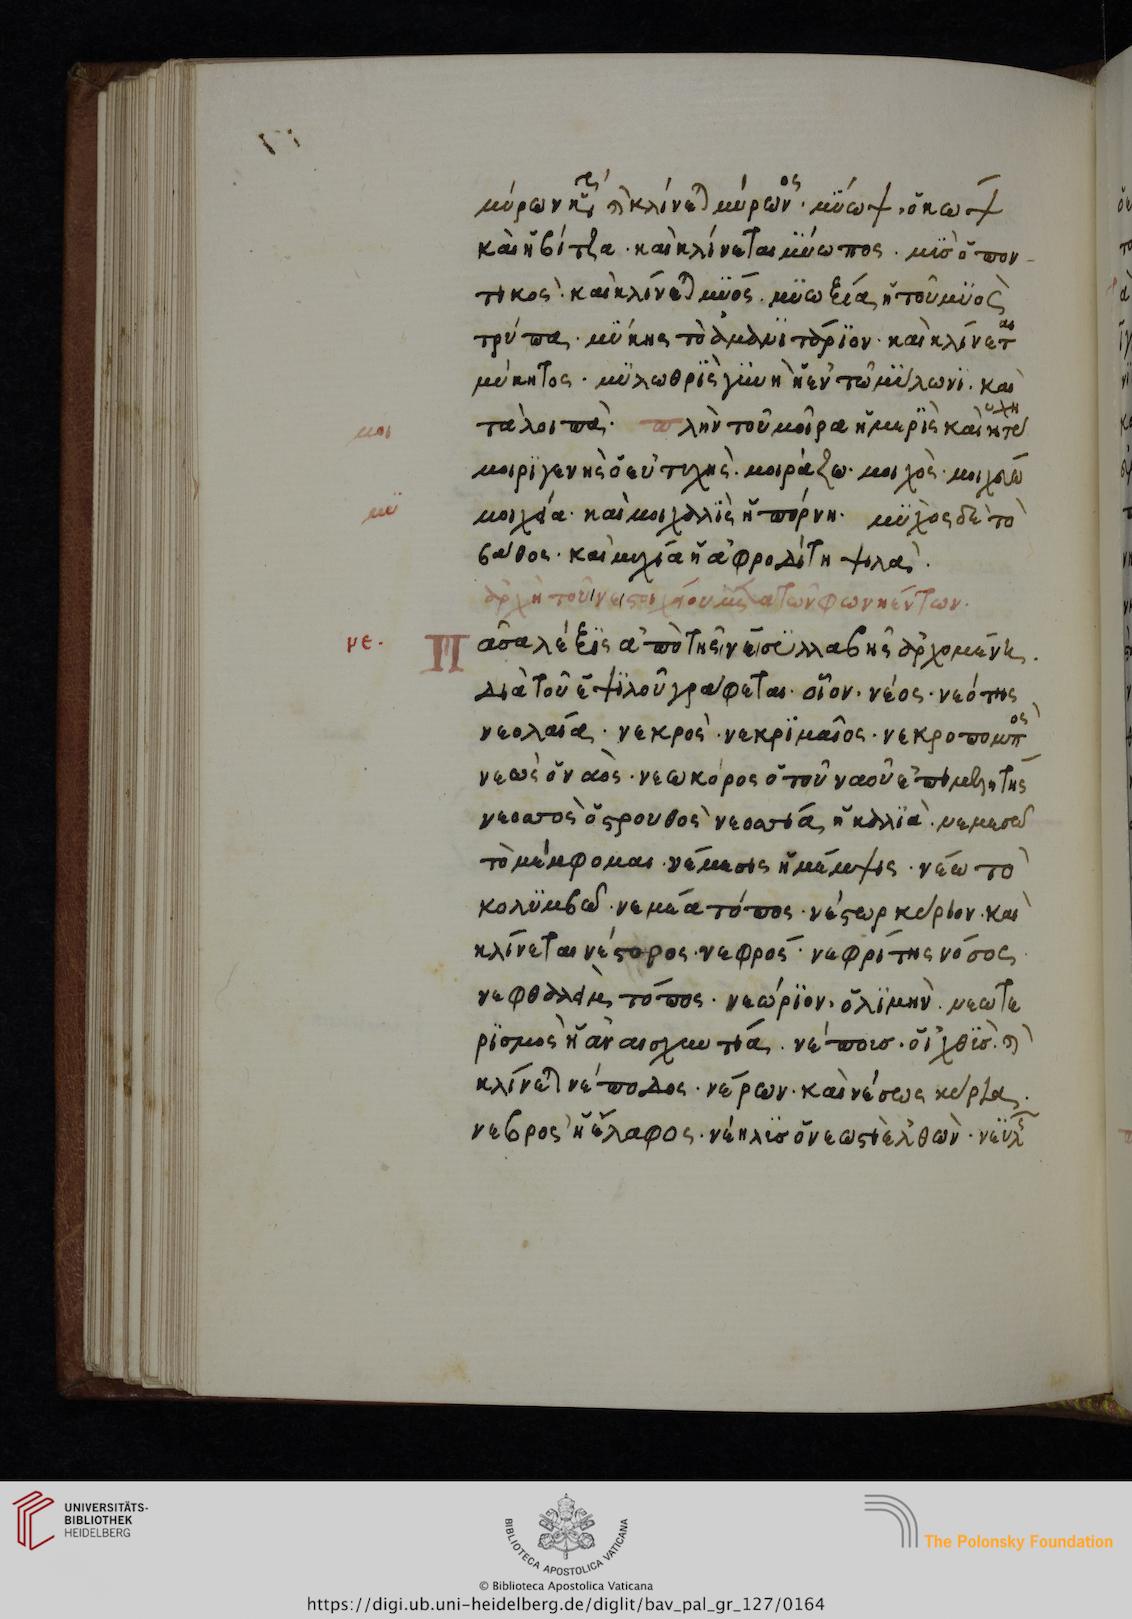 καὶ ἡ βίτζα · καὶ κλίνεται μύωπος · μῦς ὁ πον
τικός · καὶ κλίνετ μυός · μυωξία, ἡ τοῦ μυὸς
τρύπα · μύκης τὸ ἀμανιτάριον · καὶ κλίνεται
μύκητος · μυλωθρὶς γυνὴ ἡ ἐν τῶ μύλωνι · καὶ
τὰ λοιπά · πλὴν τοῦ μοῖρα ἡ μερὶς καὶ ἡ τύχη
μοι
μοιριγενὴς ὁ εὐτυχής · μοιράζω · μοιχὸς · μοιχῶ
μοιχεία · καὶ μοιχαλὶς ἡ πόρνη · μυχὸς δὲ τὸ
μυ
βάθος · καὶ μυχία ἡ ἀφροδίτη ψιλά ·
ἀρχὴ τοῦ ν στοιχείου μετὰ τῶν φωνηέντων ·
νε ·
Πᾶσα λέξις ἀπὸ τῆς νε συλλαβῆς ἀρχομένη
διὰ τοῦ ε ψιλοῦ γράφεται · οἷον · νέος · νεότης
νεολαία · νεκρὸς · νεκριμαῖος · νεκροπομπὸς
νεὼς ὁ ναὸς · νεωκόρος ὁ τοῦ ναοῦ ἐπιμελητής
νεοσσὸς ὁ στρουθὸς νεοσσιά, ἡ καλιὰ · νεμεσῶ
τὸ μέμφομαι · νέμεσις ἡ μέμψις · νέω τὸ
κολυμβῶ · νεμέα τόπος · νέστωρ κύριον · καὶ
κλίνεται νέστορος · νεφρός · νεφρίτης νόσος
νεφθαλεὶμ τόπος · νεώριον, ὁ λιμὴν · νεωτε
ρισμὸς ἡ ἀναισχυντία · νέποισ · οἱ ἰχθῦς ·
κλίνετ νέποδος · νέρων · καὶ νέσως κύρια ·
νεβρὸς ἡ ἔλαφος · νέηλυς ὁ νεωστὶ ἐλθὼν ·
UNIVERSITÄTS-
BIBLIOTHEK
HEIDELBERG
BIBLIOTECA APOSTOLICA VATICANA
The Polonsky Foundation
© Biblioteca Apostolica Vaticana
https://digi.ub.uni-heidelberg.de/diglit/bav_pal_gr_127/0164